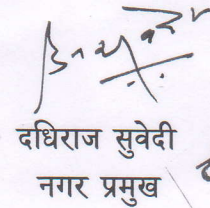 दधिराज सुवेदी
नगर प्रमुख